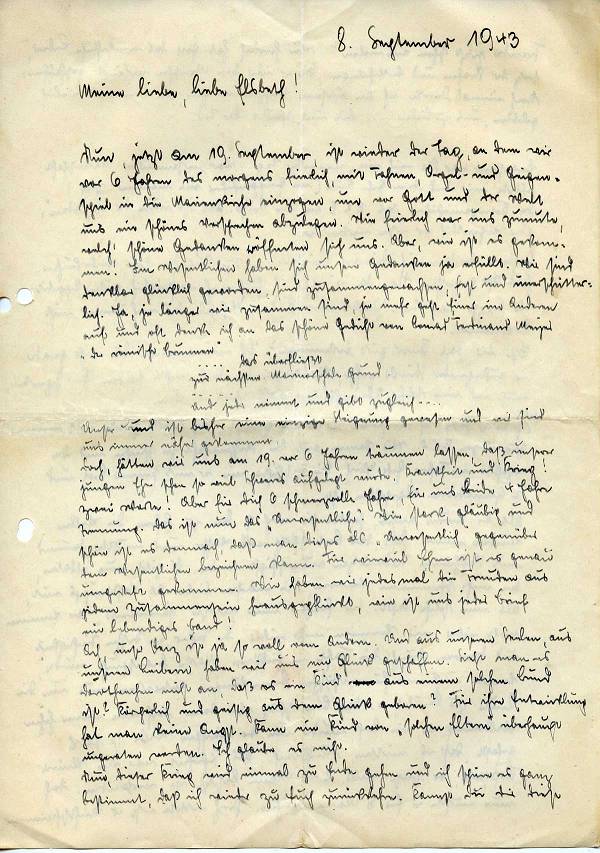 8. September 1943
Meine liebe, liebe Elsbeth!
Nun, jetzt am 19. September, ist wieder der Tag, an dem wir
vor 6 Jahren des morgens feierlich, mit Fahnen, Orgel- und Geigen-
spiel in die Marienkirche einzogen, um vor Gott und der Welt
uns ein schönes Versprechen abzulegen. Wie feierlich war uns zumute,
welch' schöne Gedanken eröffneten sich uns. Aber, wie ist es gekom-
men! Im Wesentlichen haben sich unsere Gedanken ja erfüllt. Wir sind
denkbar glücklich geworden, sind zusammengewachsen, fest und unerschütter-
lich. Ja, je länger wir zusammen sind, je mehr geht Einer im Anderen
auf und oft denke ich an das schöne Gedicht von Conrad Ferdinand Meyer
"der römische Brunnen"
.... das überfließt
zur nächsten Marmorschale Grund.
.........
Und jede nimmt und gibt zugleich....
Unser Bund ist bisher eine einzige Steigerung gewesen und wir sind
uns immer näher gekommen
Doch, hätten wir uns am 19. vor 6 Jahren träumen lassen, daß unserer
jungen Ehe schon so viel Schweres auferlegt würde. Krankheit und Krieg!
zwei Worte! Aber für Dich 6 schmerzvolle Jahre, für uns beide 4 Jahre
Trennung. Das ist nun das "Unwesentliche". Wie stark, gläubig und
schön ist es demnach, daß man dieses als "Unwesentlich" gegenüber
dem Wesentlichen bezeichnen kann. Für wieviel Ehen ist es genau
umgekehrt gekommen. Wie haben wir jedesmal die Freuden aus
jedem Zusammensein herausgepflückt, wie ist uns jeder Brief
ein lebendiges Band!
Ach, unser Herz ist ja so voll vom Andern. Und aus unseren Seelen, aus
unseren Leibern haben wir uns ein Glück geschaffen. Sieht man es
Dorotheechen nicht an, daß es ein Kind aus einem solchen Bund
ist? Körperlich und geistig aus dem Glück geboren? Für ihre Entwicklung
hat man keine Angst. Kann ein Kind von "solchen Eltern" überhaupt
ungeraten werden. Ich glaube es nicht.
Nun, dieser Krieg wird einmal zu Ende gehen und ich spüre es ganz
bestimmt, daß ich wieder zu Euch zurückkehre. Kannst Du Dir diese